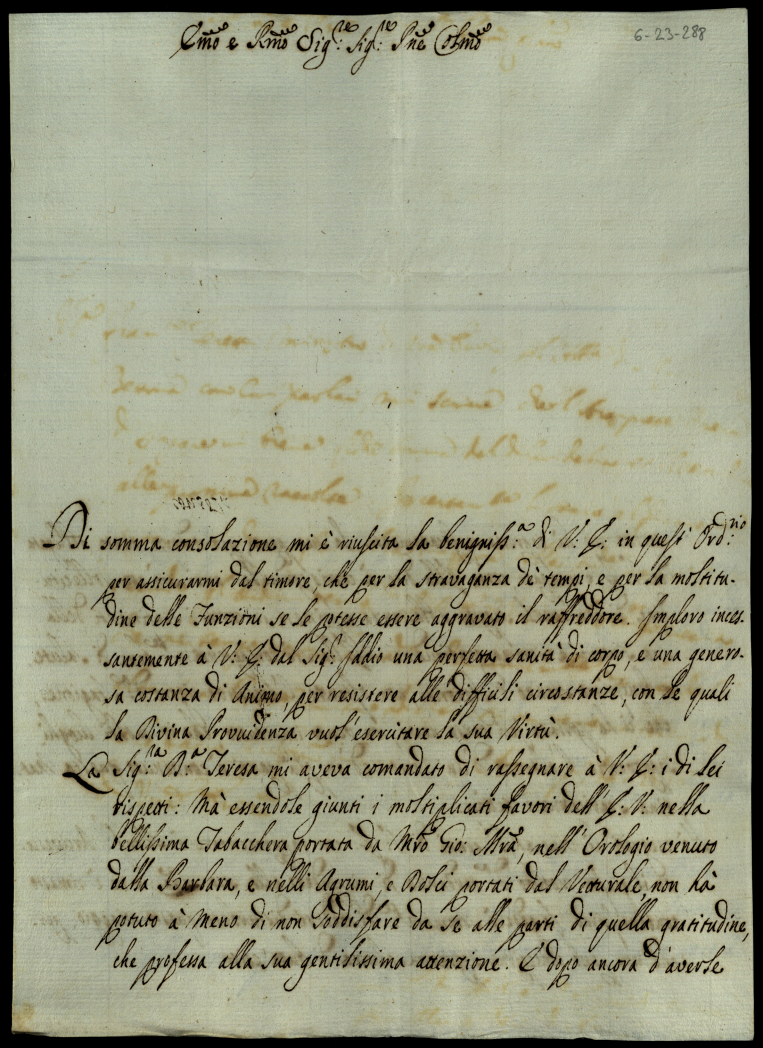 6-23-288
Emo e Rmo Sig:re Sig:re Pne Colmo
Di somma consolazione mi è riuscita la benigniss:a di V: E: in quest' Ord:rio
per assicurarmi dal timore, che per la stravaganza de' tempi, e per la moltitu-
dine delle Funzioni se le potesse essere aggravato il raffreddore. Imploro inces-
santemente à V: E: dal Sig:r Iddio una perfetta sanità di corpo, e una genero-
sa costanza di Animo, per resistere alle difficili circostanze, con le quali
la Divina Provvidenza vuol' esercitare la sua Virtù.
La Sig:ra B:a Teresa mi aveva comandato di rassegnare à V: E: i di lei
rispetti: Mà essendole giunti i moltiplicati favori dell' E: V: nella
bellissima Tabacchera portata da Mro Gio: Mra, nell' Orologio venuto
dalla Barbara, e nelli Agrumi, e Dolci portati dal Vetturale, non hà
potuto à meno di non soddisfare da se alle parti di quella gratitudine,
che professa alla sua gentilissima attenzione. E dopo ancora d'averle